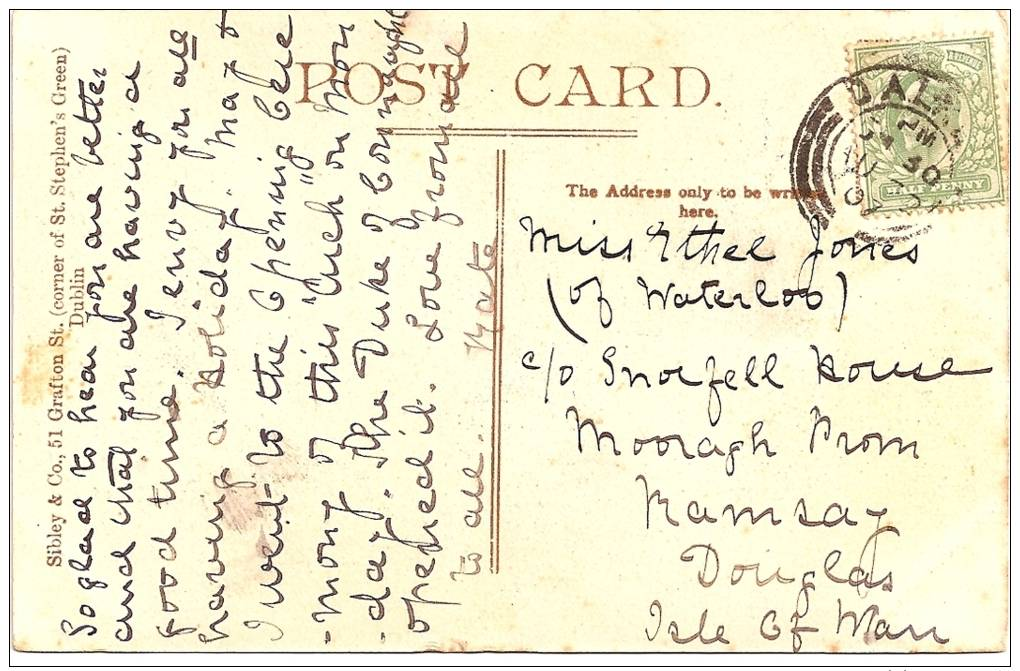 POST CARD.
The Address only to be written
here.
HALF PENNY
Sibley & Co., 51 Grafton St. (corner of St. Stephen's Green)
Dublin
So glad to hear you are better
and that you are having a
good time. I envy you all
having a Holiday. May &
I went to the Opening Cere
-mony of this "Exch" on Mon
-day. The Duke of Connaught
opened it. Love from all
to all. Kate
Miss Ethel Jones
(of Waterloo)
c/o Snoefell House
Mooragh Prom
Ramsay
Douglas
Isle Of Man